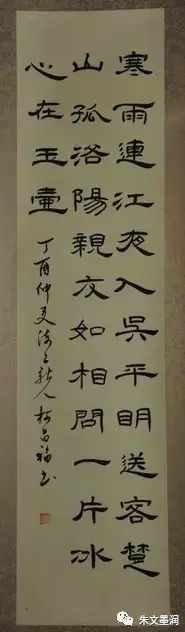 寒雨連江夜入吳平明送客楚
山孤洛陽親友如相問一片冰
心在玉壺
丁酉仲夏
昌福书
朱文墨润